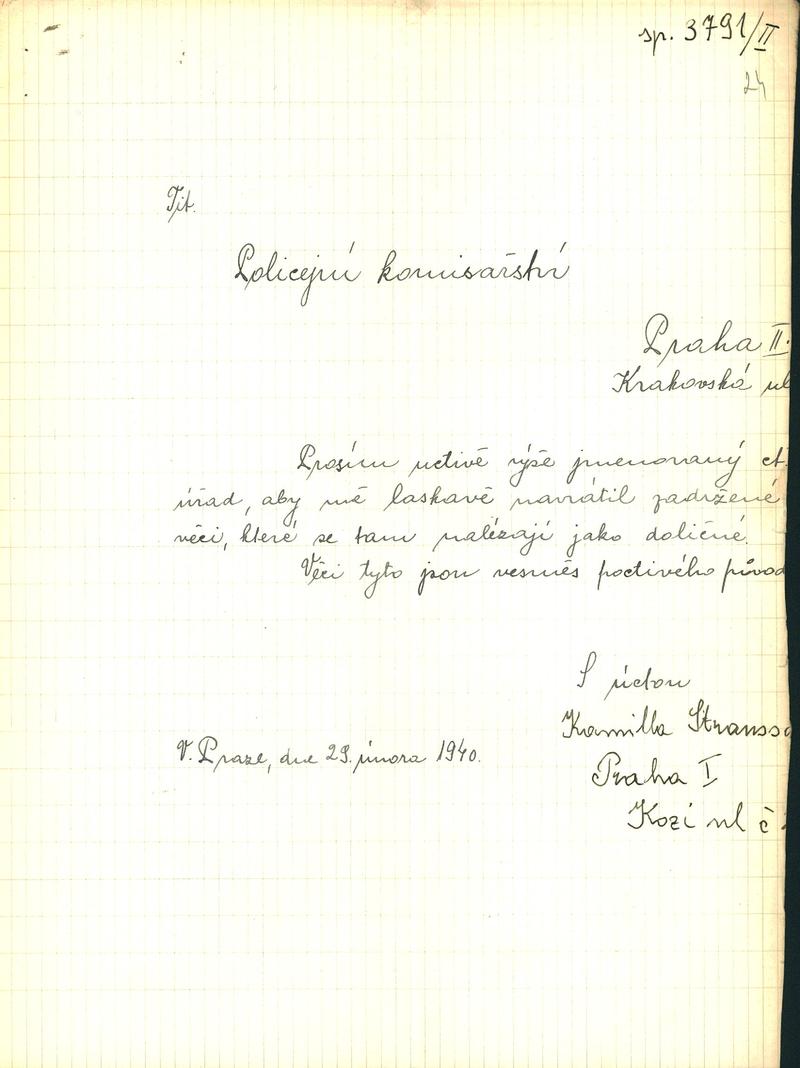 sp. 3791/II
24
Tit.
Policejní komisařství
Praha II.
Krakovská ul
Prosím uctivě výše jmenovaný ct.
úřad, aby mě laskavě navrátil zadržené
věci, které se tam nalézají jako doličné.
Věci tyto jsou vesměs poctivého původ
S úctou
Kamilla Strausso
V. Praze, dne 29. února 1940.
Praha I
Kozí ul č